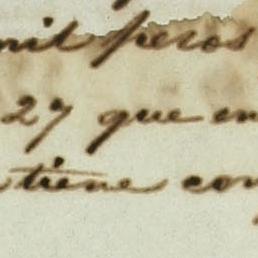 mil pesos
27 que en
tiene con